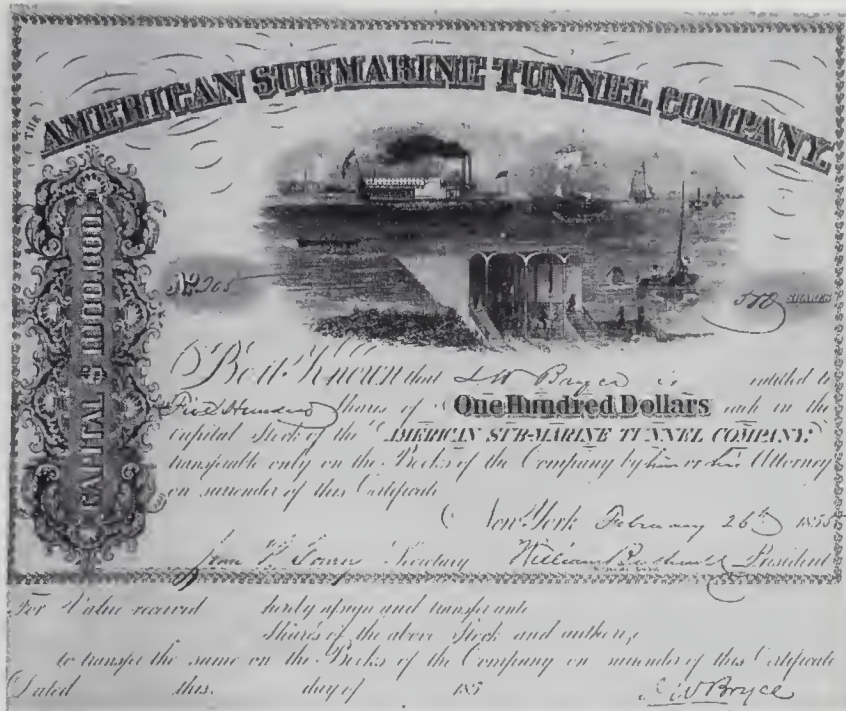 (THE)
AMERICAN SUBMARINE TUNNEL COMPANY.
CAPITAL $ 1.000.000.
No. 205
500 SHARES
Be it Known that J W Bryce is entitled to
Five Hundred Shares of One Hundred Dollars each in the
capital Stock of the "AMERICAN SUB-MARINE TUNNEL COMPANY"
transferable only on the Books of the Company by him or his Attorney
on surrender of this Certificate
New York February 26th 1855
Secretary William President
For Value received hereby assign and transfer unto
Shares of the above Stock and
to transfer the same on the Books of the Company on surrender of this Certificate
Dated this. day of 185
J W Bryce